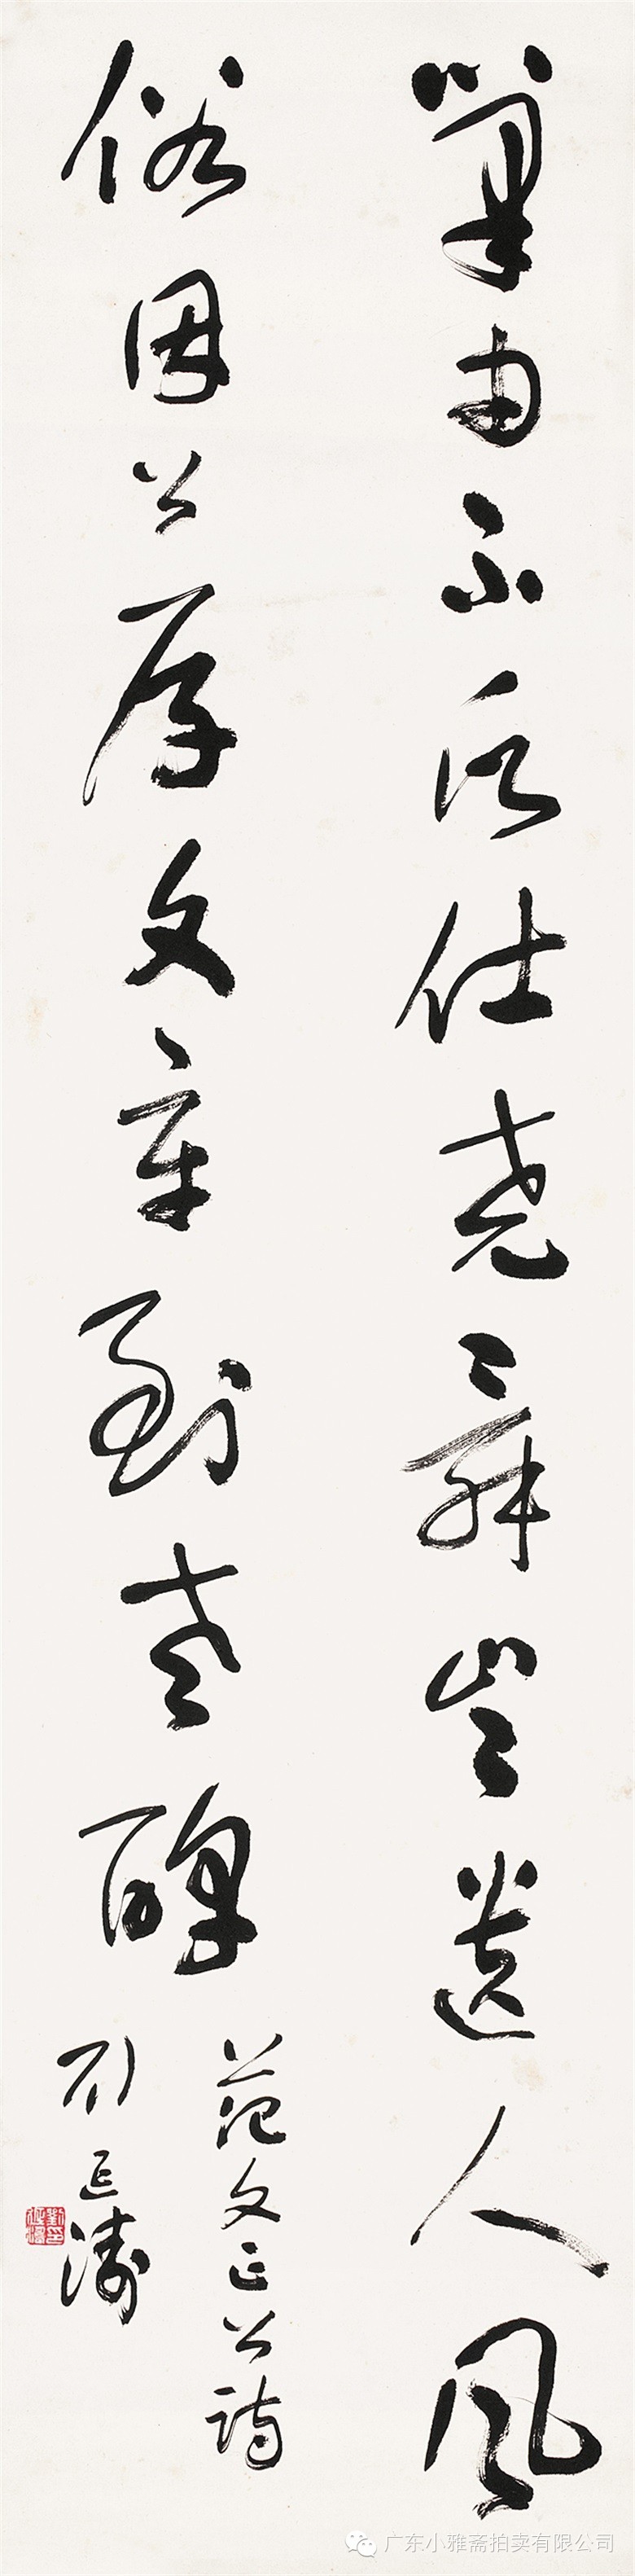 巢由不願仕堯舜豈遺人風
俗因公厚文章到老醇
范文正公詩
劉延濤
劉印延濤
广东小雅斋拍卖有限公司